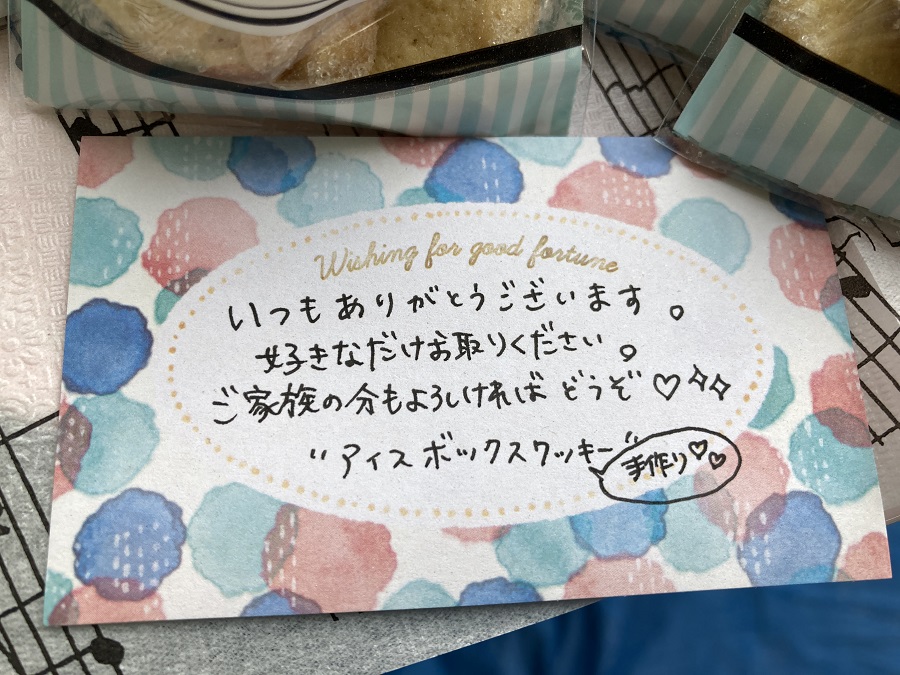 Wishing for good fortune
いつもありがとうございます。
好きなだけお取りください。
ご家族の分もよろしければどうぞ♡✧✧
"アイスボックスクッキー"
手作り♡♡